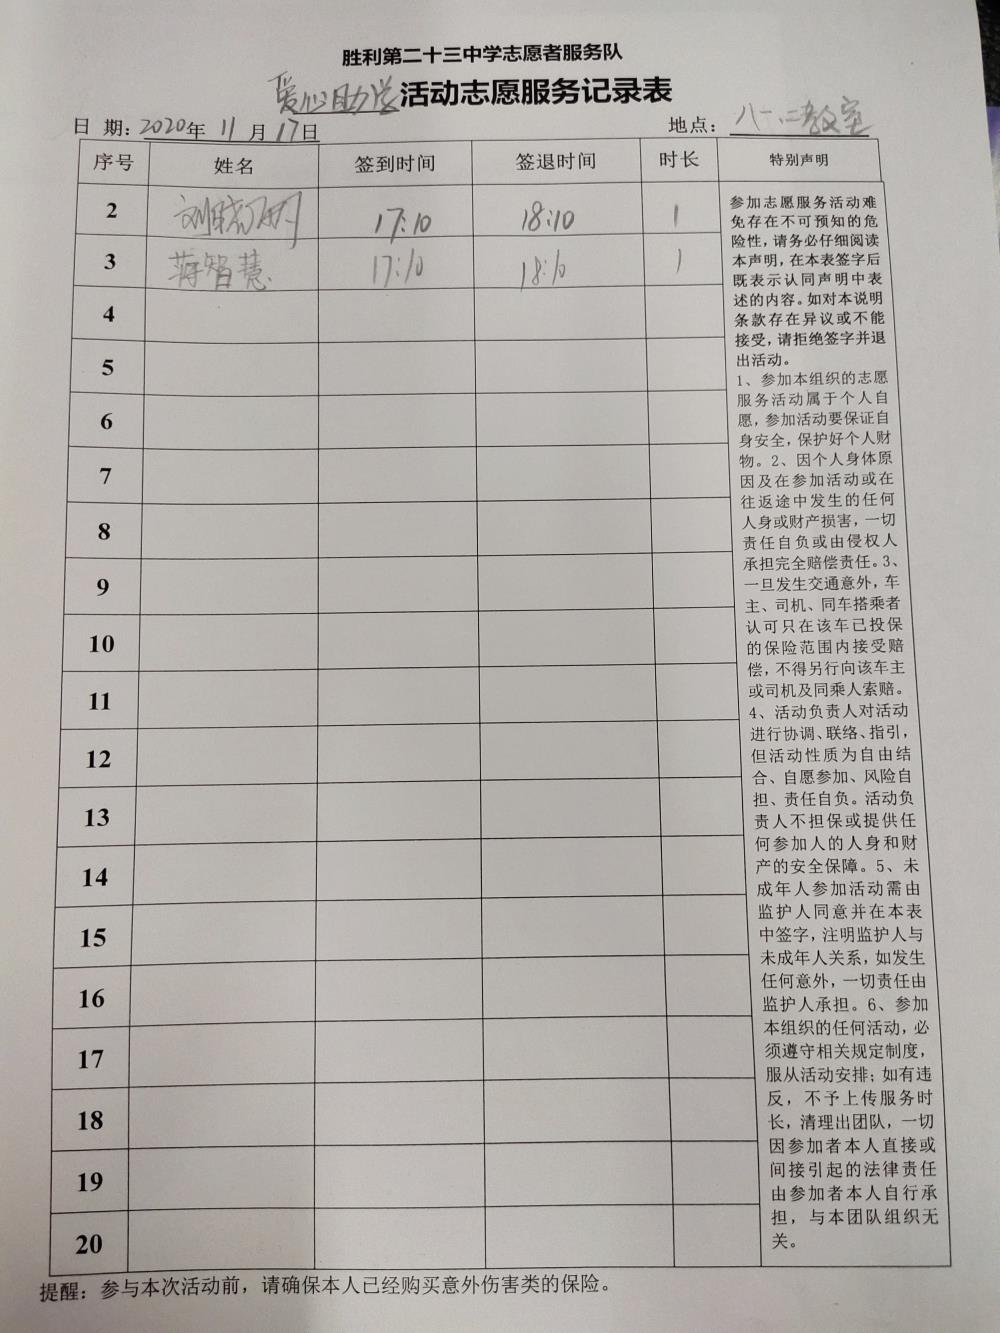 胜利第二十三中学志愿者服务队
爱心助学活动志愿服务记录表
日 期：2020年 11 月 17日 地点：八一.二教室
序号 姓名 签到时间 签退时间 时长 特别声明
2 17:10 18:10 1
3 蒋智慧 17:10 18:10 1
4
5
6
7
8
9
10
11
12
13
14
15
16
17
18
19
20
参加志愿服务活动难
免存在不可预知的危
险性，请务必仔细阅读
本声明，在本表签字后
既表示认同声明中表
述的内容。如对本说明
条款存在异议或不能
接受，请拒绝签字并退
出活动。
1、参加本组织的志愿
服务活动属于个人自
愿，参加活动要保证自
身安全，保护好个人财
物。2、因个人身体原
因及在参加活动或在
往返途中发生的任何
人身或财产损害，一切
责任自负或由侵权人
承担完全赔偿责任。3、
一旦发生交通意外，车
主、司机、同车搭乘者
认可只在该车已投保
的保险范围内接受赔
偿，不得另行向该车主
或司机及同乘人索赔。
4、活动负责人对活动
进行协调、联络、指引，
但活动性质为自由结
合、自愿参加、风险自
担、责任自负。活动负
责人不担保或提供任
何参加人的人身和财
产的安全保障。5、未
成年人参加活动需由
监护人同意并在本表
中签字，注明监护人与
未成年人关系，如发生
任何意外，一切责任由
监护人承担。6、参加
本组织的任何活动，必
须遵守相关规定制度，
服从活动安排；如有违
反，不予上传服务时
长，清理出团队，一切
因参加者本人直接或
间接引起的法律责任
由参加者本人自行承
担，与本团队组织无
关。
提醒：参与本次活动前，请确保本人已经购买意外伤害类的保险。